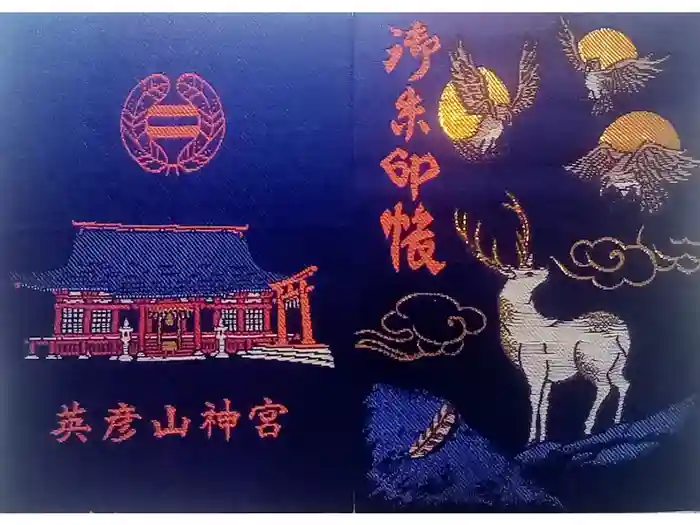 御朱印帳
英彦山神宮